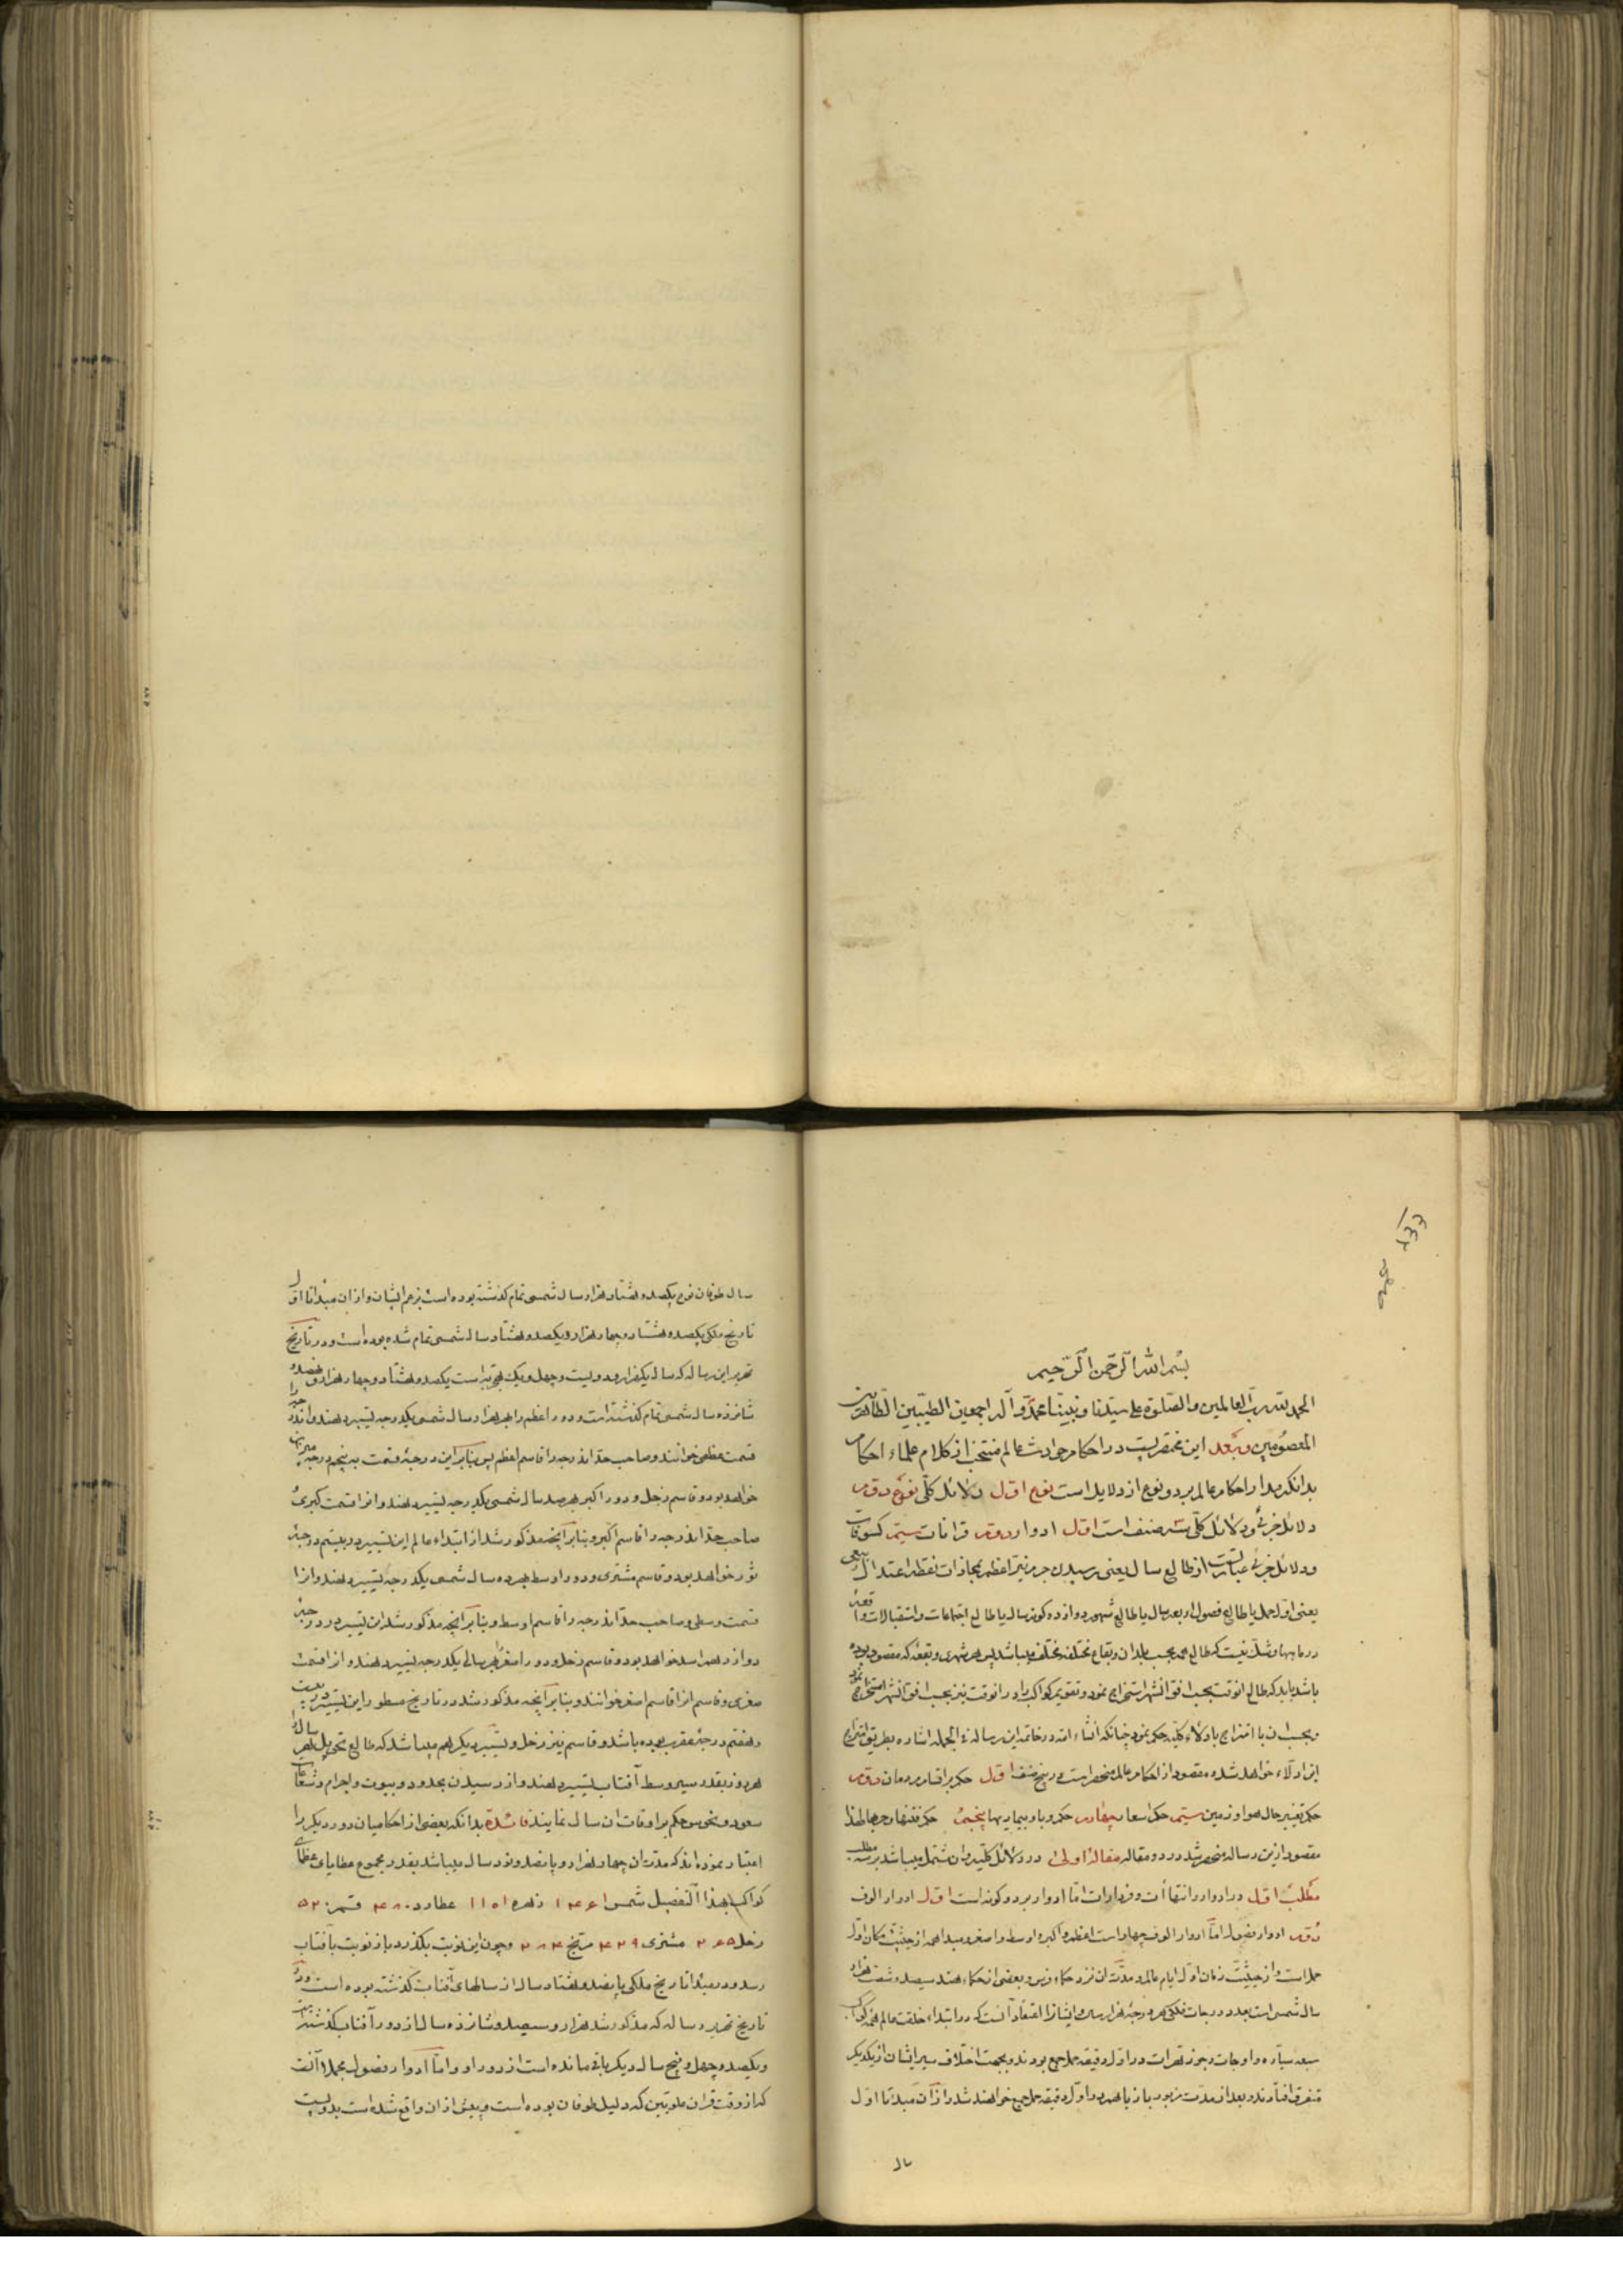 بسم الله الرحمن الرحیم
الحمد لله رب العالمین والصلوة علی سیدنا ونبینا محمد وآله اجمعین الطیبین الطاهرین
المعصومین وبعد این مختصریست در احکام حوادث عالم منتخب از کلام علماء احکام
بدانکه مدار احکام عالم بر دو نوع از دلایل است نوع اول دلائل کلی نوع دوم
دلائل جزئی ودلائل کلی سه صنف است اول ادوار دوم قرانات سیم کسوفات
ودلائل جزئی عبارتست از طالع سال یعنی رسیدن جرم نیر اعظم بمحاذات نقطه اعتدال ربیعی
یعنی اول حمل یا طالع فصول اربعه سال یا طالع شهور دوازده کونه سال یا طالع اجتماعات واستقبالات واقعهٔ
در ماهها وشک نیست که طالع همه بحسب بلدان وبقاع مختلفه مختلف میباشد پس هر شهری وبقعهٔ که مقصود بوده
باشد باید که طالع انوقت بحسب افق انشهر استخراج نمود وتقویم کواکب را در انوقت نیز بحسب افق انشهر استخراج نمود
وبحسب ان با امتزاج با دلائل کلیه حکم نمود چنانکه انشاء الله در خاتمه این رساله فی الجمله اشاره بطریق امتزاج
این ادلاء خواهد شد ومقصود از احکام عالم منحصر است در پنج صنف اول حکم بر اقسام مردمان دوم
حکم تغییر حال هوا وزمین سیم حکم اسعار چهارم حکم وبا وبیماریها پنجم حکم فتنها وحربها لهذا
مقصود ازین رساله منحصر شد در دو مقاله مقاله اولی در دلائل کلیه وان مشتمل میباشد بر سه مطلب
مطلب اول در ادوار وانتهاآت وفردارات اما ادوار بر دو کونه است اول ادوار الوف
دوم ادوار فصول اما ادوار الوف چهار است اعظم واکبر واوسط واصغر ومبدا همه از حیثیت مکان اول
حمل است واز حیثیت زمان اول ایام عالم ومدت ان نزد حکماء فرس وبعضی از حکماء هند سیصد وشصت هزار
سال شمسی است بعدد درجات فلکی هر درجهٔ هزار سال وایشانرا اعتقاد آنست که در ابتداء خلقت عالم همه کواکب
سبعه سیاره واوجات وجوزهرات در اول دقیقه حمل جمع بودند وبجهت اختلاف سیر ایشان از یکدیکر
متفرق افتادند وبعد از مدت مزبور باز باهم در اول دقیقه حمل جمع خواهند شد واز آن مبدا تا اول
سال
سال طوفان نوح یکصد وهشتاد هزار سال شمسی تمام کذشته بوده است بزعم ایشان واز ان مبدا تا اول
تاریخ ملکی یکصد وهشتاد وچهار هزار ویکصد وهشتاد سال شمسی تمام شده بوده است ودر تاریخ
تحریر این رساله که سال یکهزار ودویست وچهل ویک هجریه است یکصد وهشتاد وچهار هزار ونهصد و
شانزده سال شمسی تمام کذشته است ودور اعظم را بهر هزار سال شمسی یکدرجه تسییر دهند وان درجه را
قسمت عظمی خوانند وصاحب حد آندرجه را قاسم اعظم پس بنابراین درجهٔ قسمت به پنجم درجه میزان
خواهد بود وقاسم زحل ودور اکبر بهر صد سال شمسی یکدرجه تسییر دهند وانرا قسمت کبری
صاحب حد آندرجه را قاسم اکبر وبنابر آنچه مذکور شد از ابتداء عالم این تسییر در بیستم درجهٔ
ثور خواهد بود وقاسم مشتری ودور اوسط بهر ده سال شمسی یکدرجه تسییر دهند وانرا
قسمت وسطی وصاحب حد آندرجه را قاسم اوسط وبنابر آنچه مذکور شد این تسییر در درجهٔ
دوازدهم اسد خواهد بود وقاسم زحل ودور اصغر بهر سالی یکدرجه تسییر دهند وانرا قسمت
صغری وقاسم انرا قاسم اصغر خوانند وبنابر آنچه مذکور شد در تاریخ مسطور این تسییر در بیست
وهفتم درجه عقرب بوده باشد وقاسم نیز زحل وتسییر دیکر هم میباشد که طالع تحویل هر سال را
هر روز بقدر سیر وسط آفتاب تسییر دهند واز رسیدن بحدود وبیوت واجرام وشعاعات
سعود ونحوس حکم بر اوقات ان سال نمایند فائده بدانکه بعضی از احکامیان دور دیکر را
اعتبار نموده اند که مدت ان چهار هزار وپانصد ونود سال میباشد بقدر مجموع عطایای عظمای
کواکب بهذا التفصیل شمس ۱۴۶۱ زهره ۱۱۵۱ عطارد ۴۸۰ قمر ۵۲۰
زحل ۲۶۵ مشتری ۴۲۹ مریخ ۲۸۴ وچون این نوبت بکذرد باز نوبت بآفتاب
رسد ودر مبدا تاریخ ملکی پانصد وهفتاد سال از سالهای آفتاب کذشته بوده است ودر
تاریخ تحریر رساله که مذکور شد هزار وسیصد وشانزده سال از دور آفتاب کذشته است
ویکصد وچهل وپنج سال دیکر باقی مانده است از دور او واما ادوار فصول مجملا آنست
که از وقت قران علویین که دلیل طوفان بوده است وپیش از ان واقع شده است بدویست